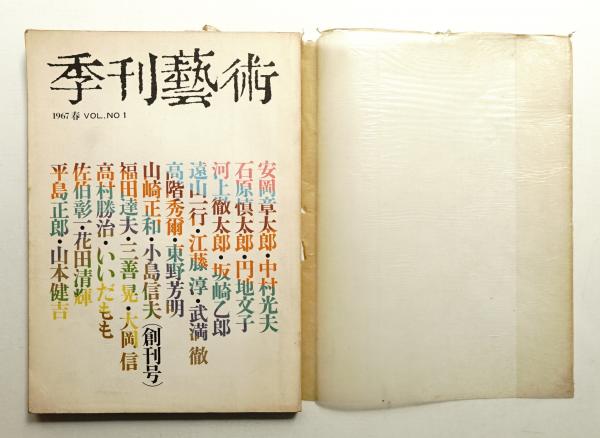 季刊藝術
1967 春 VOL.,NO 1
安岡章太郎・中村光夫
石原慎太郎・円地文子
河上徹太郎・坂崎乙郎
遠山一行・江藤淳・武満徹
高階秀爾・東野芳明
山崎正和・小島信夫(創刊号)
福田達夫・三善晃・大岡信
高村勝治・いいだもも
佐伯彰一・花田清輝
平島正郎・山本健吉